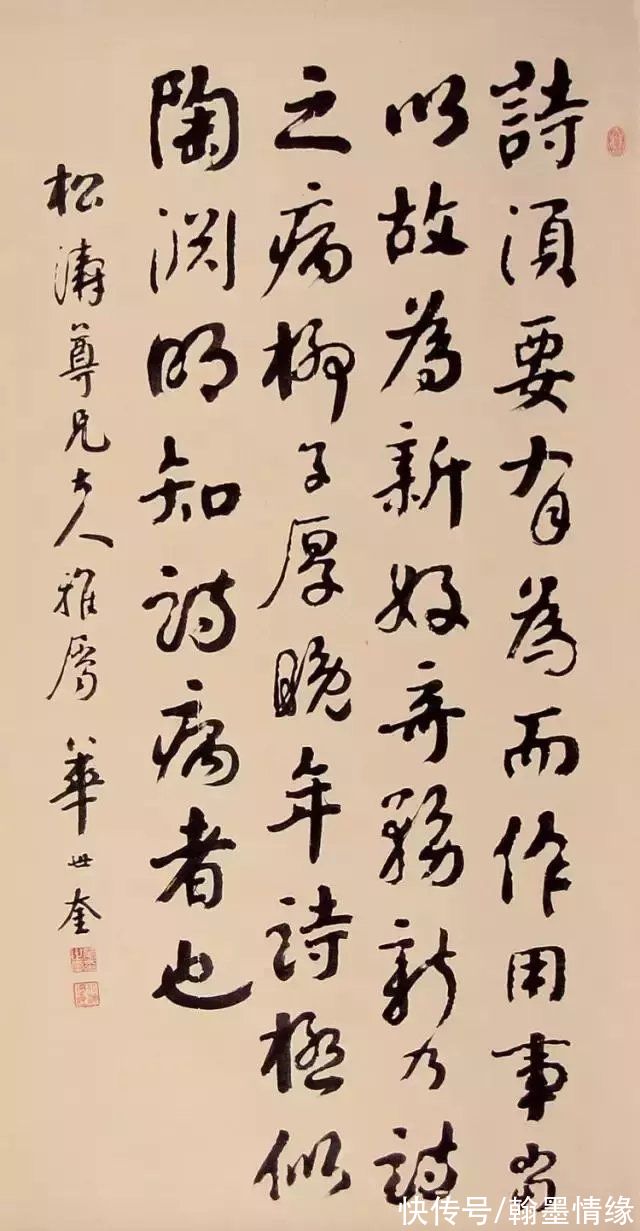 詩須要有為而作用事當
以故為新好奇務新乃詩
之病柳子厚晚年詩極似
陶淵明知詩病者也
松濤尊兄大人雅屬 華世奎
快传号/翰墨情缘